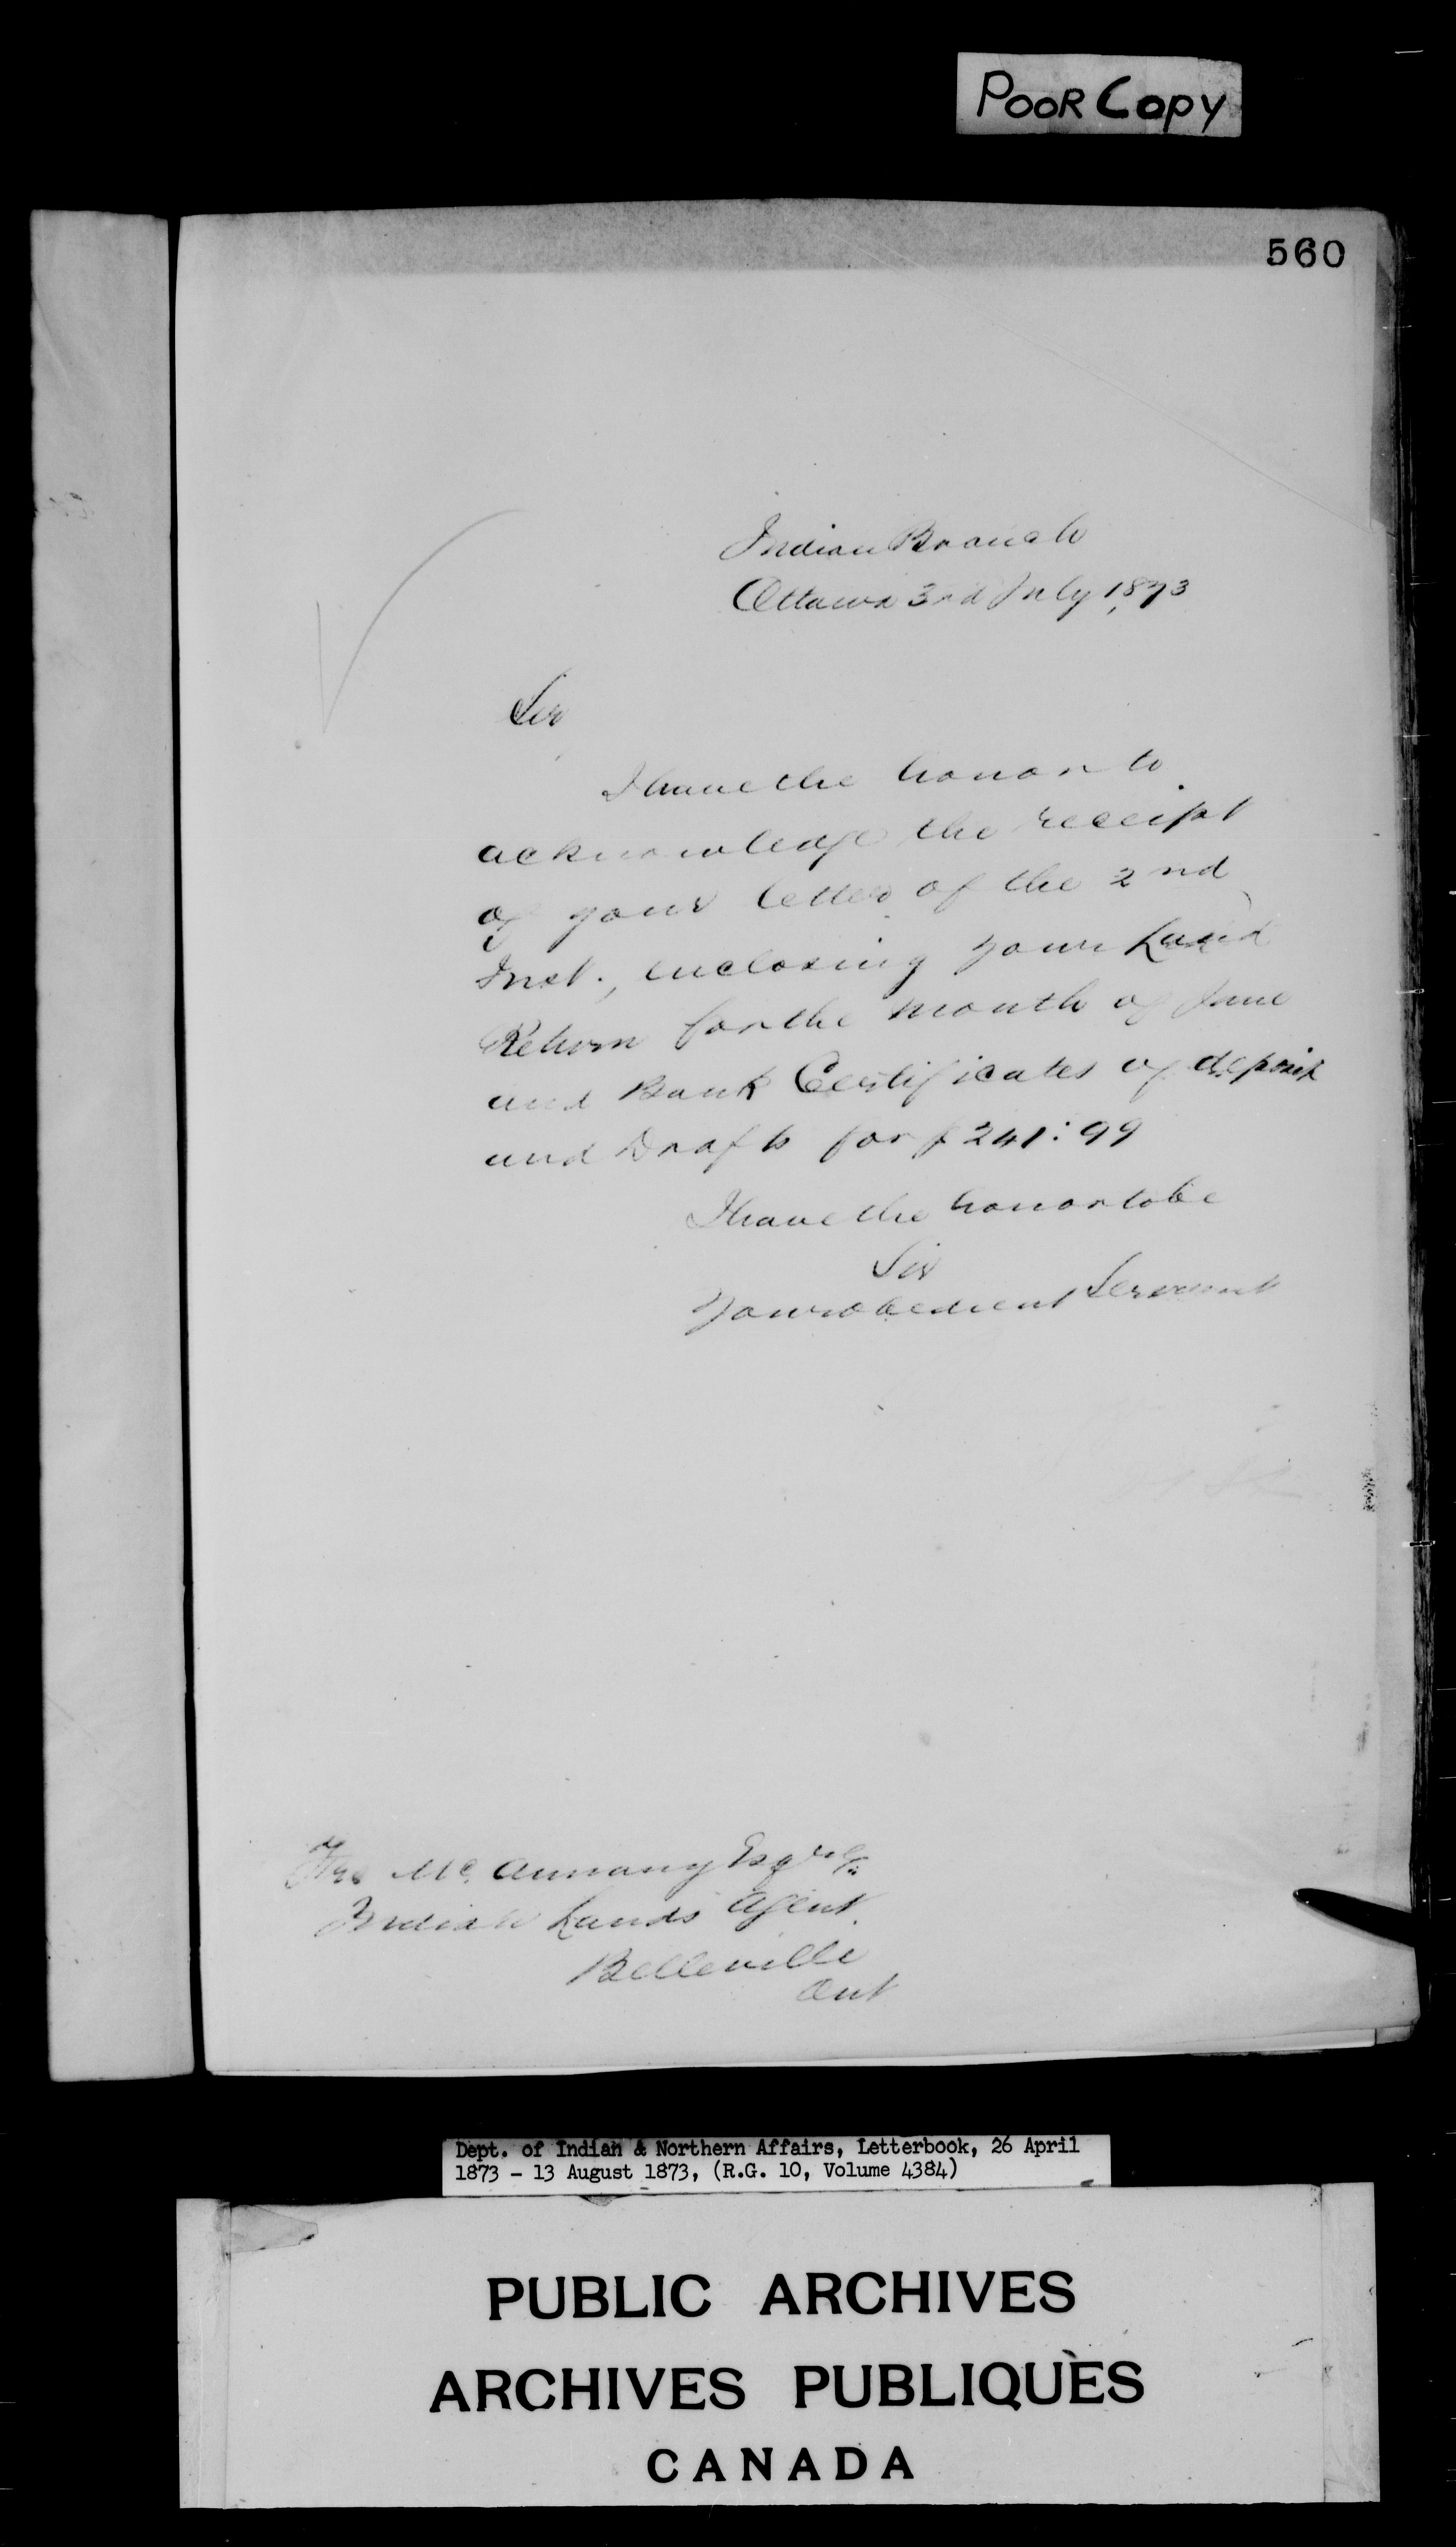 POOR COPY
560
Indian Branch
Ottawa 3rd July 1873
Sir
I have the honor to
acknowledge the receipt
of your letter of the 2nd
Inst., enclosing your Land
Return for the month of June
and Bank Certificates of deposit
and Drafts for $241:99
I have the honor to be
Sir
Your obedient Servant
Mc. Annany Esqre
Indian Lands Agent
Belleville
Ont
Dept. of Indian & Northern Affairs, Letterbook, 26 April
1873 - 13 August 1873, (R.G. 10, Volume 4384)
PUBLIC ARCHIVES
ARCHIVES PUBLIQUES
CANADA